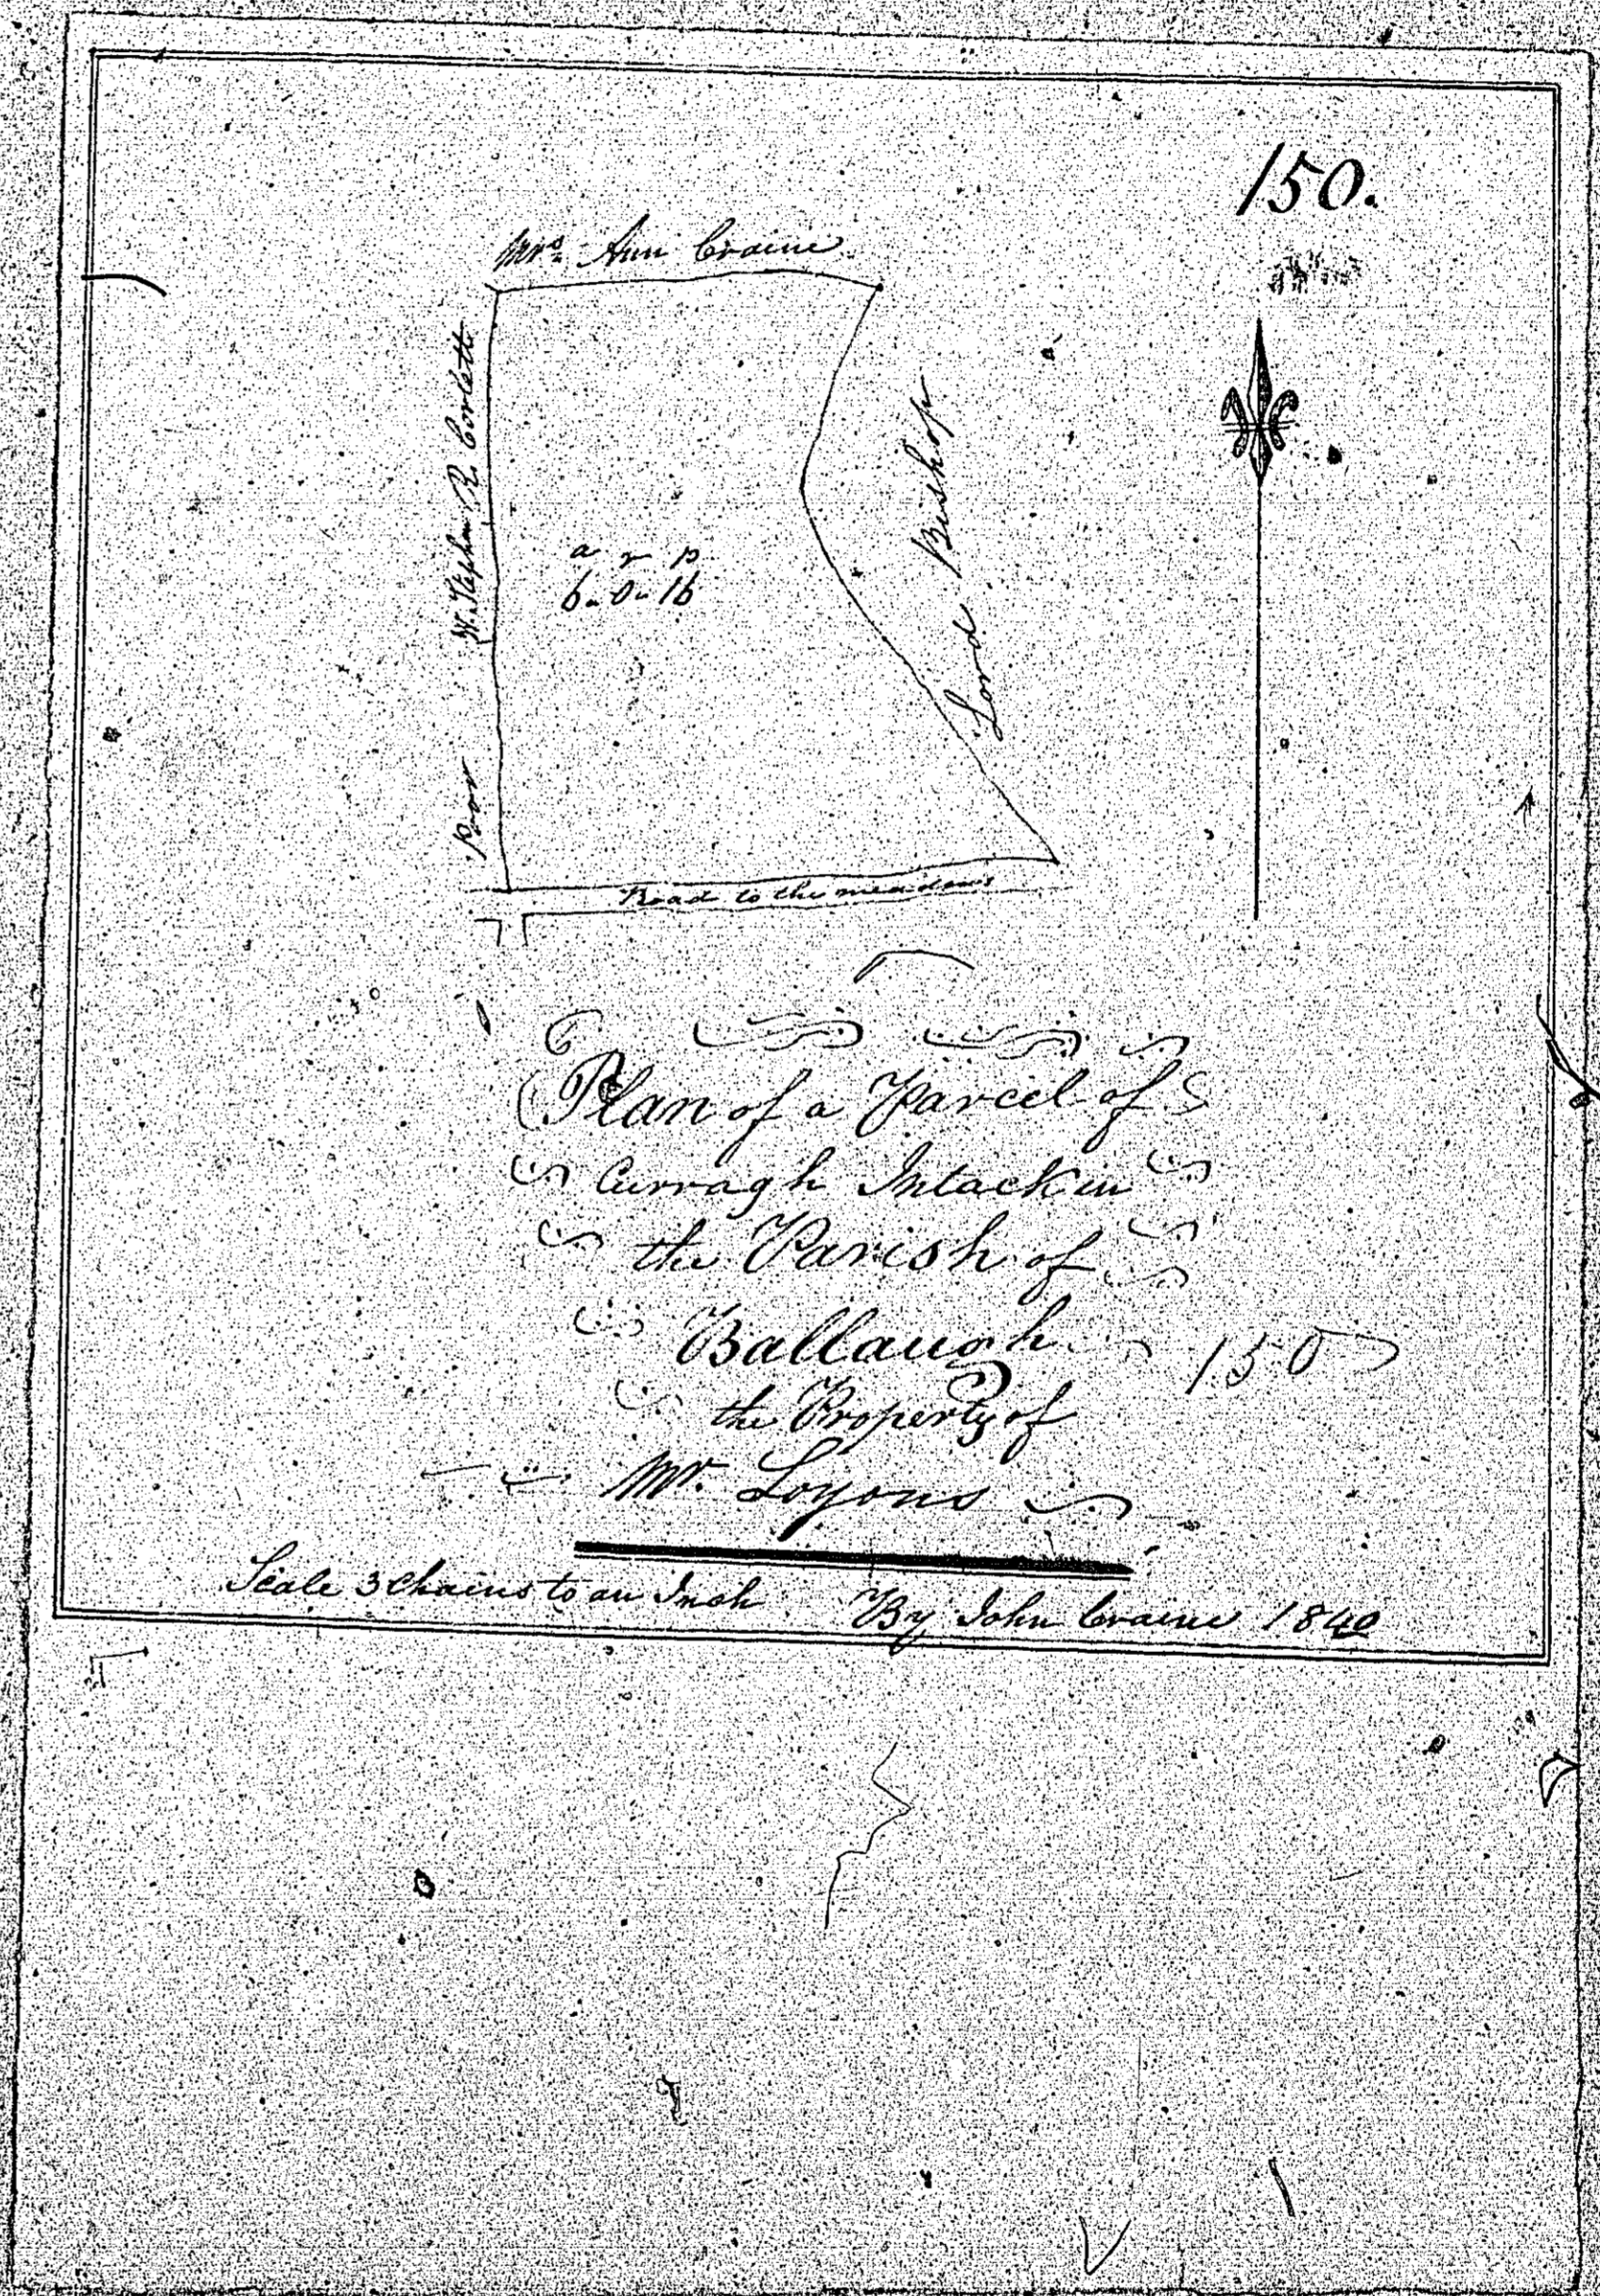 150.
Mrs Ann Craine
W. Stephen R. Corlett
Lord Bishop
a r p
6 - 0 - 16
Road to the meadows
Plan of a Parcel of
Curragh Intack in
the Parish of
Ballaugh
150
the Property of
Mr. Loyons
Scale 3 Chains to an Inch
By John Craine 1840